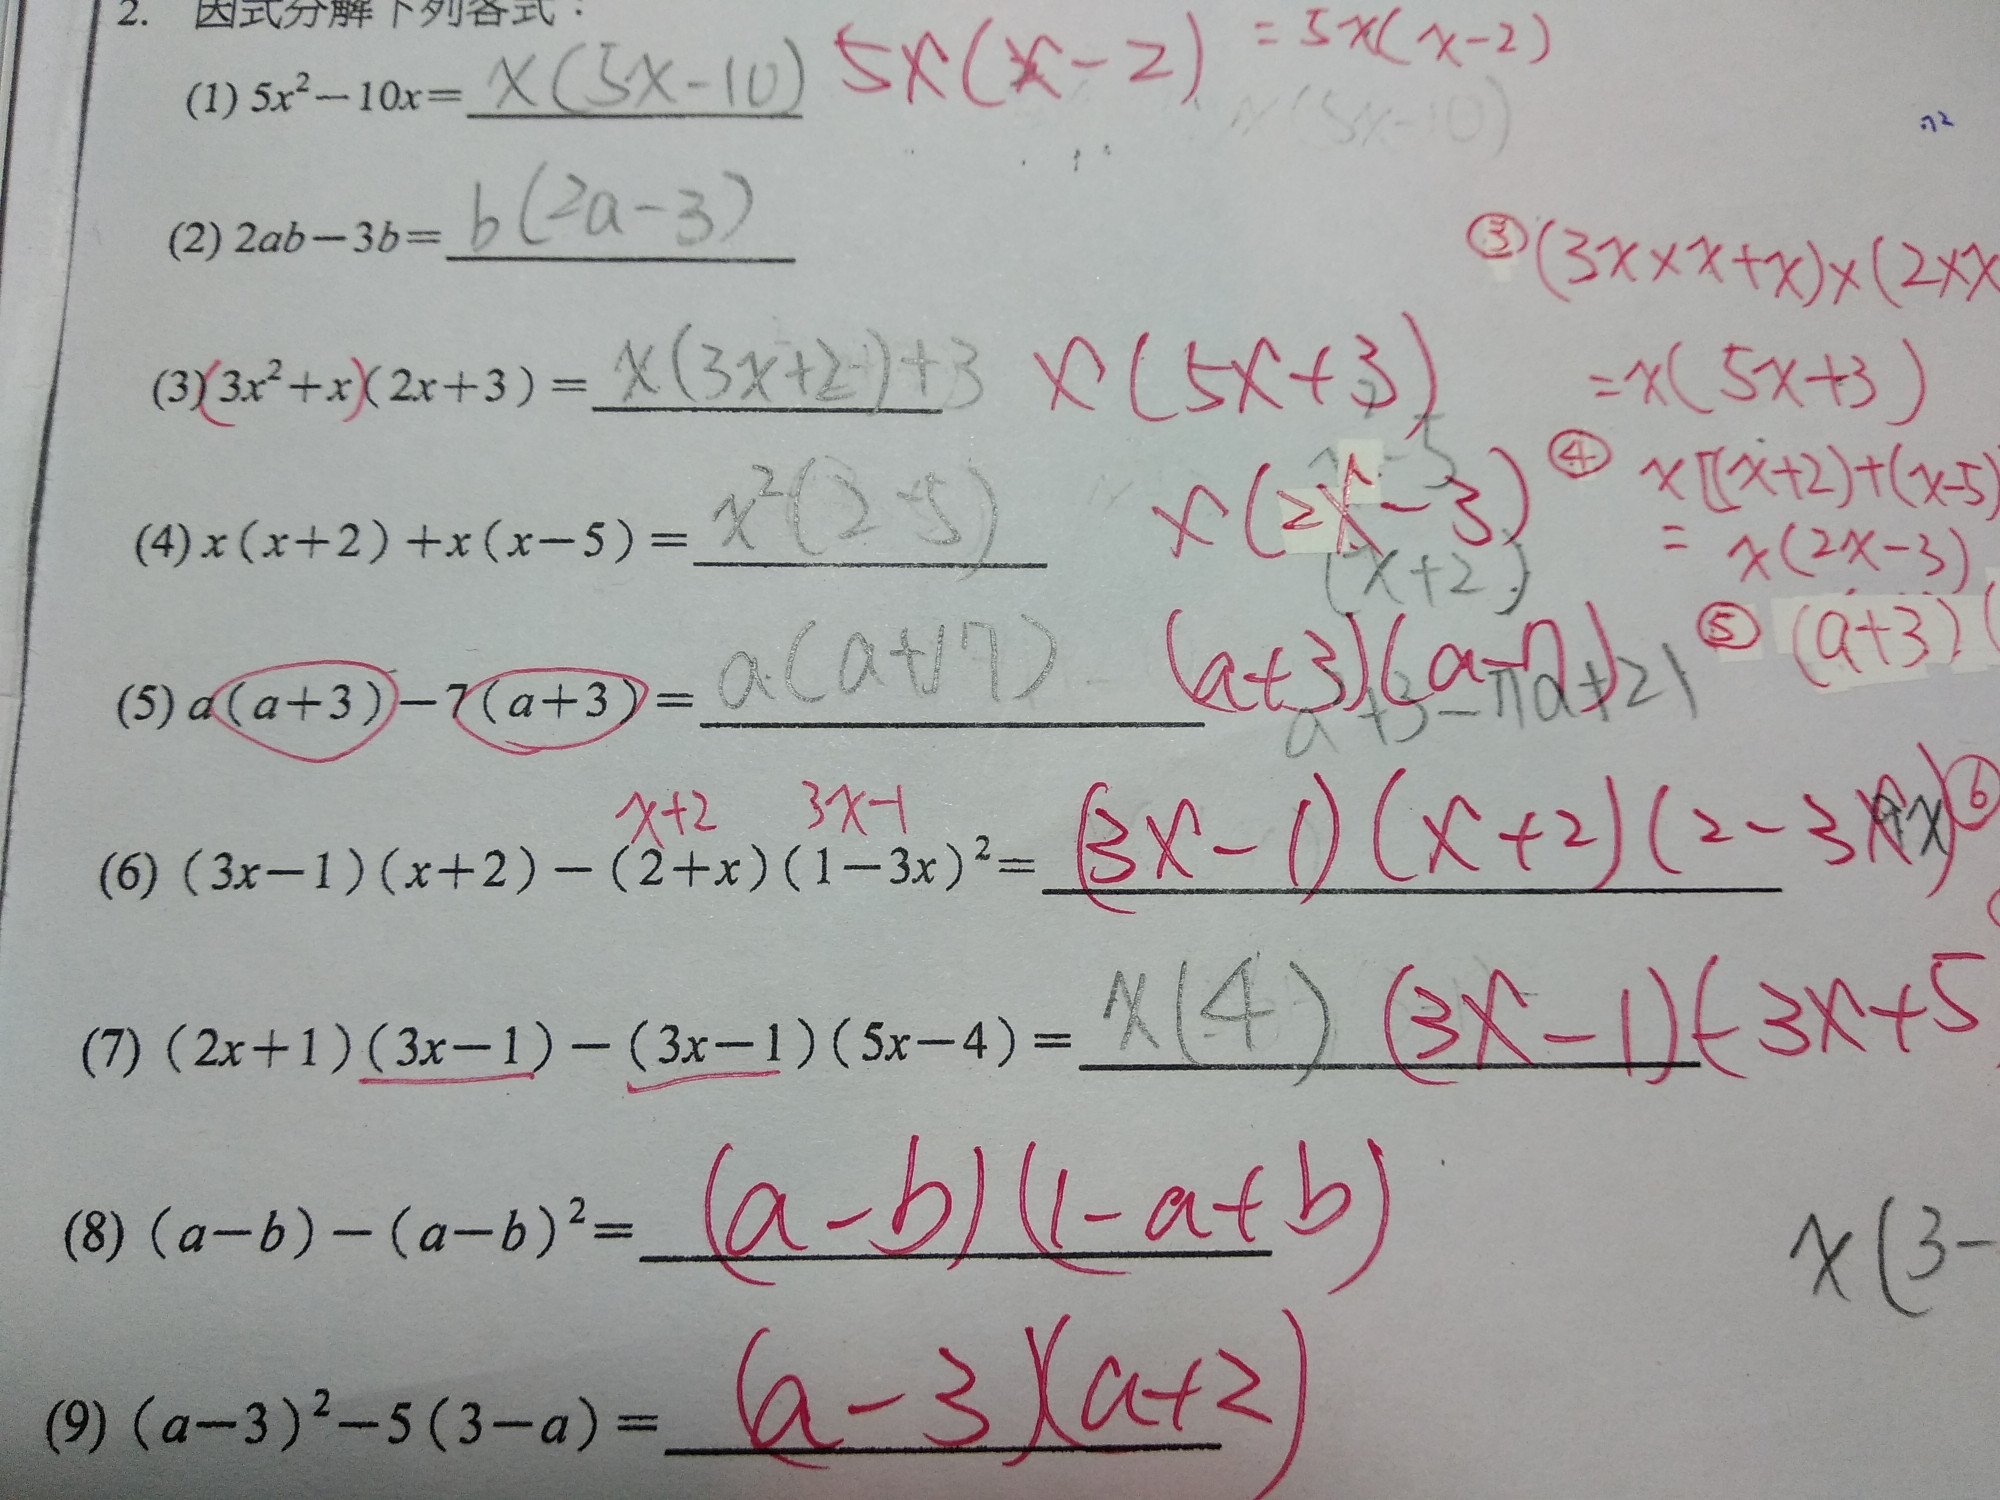 2. 因式分解下列各式：
(1) 5x²－10x= x(5x-10) 5x(x-2) = 5x(x-2)
x(5x-10)
(2) 2ab－3b= b(2a-3)
③ (3x×x+x)×(2×x
(3)(3x²+x)(2x+3) = x(3x+2)+3 x(5x+3) =x(5x+3)
④ x[(x+2)+(x-5)
(4) x(x+2)+x(x－5) = x²(2-5) x(2x-3) = x(2x-3)
(x+2)
⑤ (a+3)(
(5) a(a+3)－7(a+3) = a(a+17) (a+3)(a-7)
x+2 3x-1
(6) (3x－1)(x+2)－(2+x)(1－3x)²= (3x-1)(x+2)(2-3x) ⑥
(7) (2x+1)(3x－1)－(3x－1)(5x－4) = x(4) (3x-1)(-3x+5
(8) (a－b)－(a－b)²= (a-b)(1-a+b)
x(3-
(9) (a－3)²－5(3－a) = (a-3)(a+2)